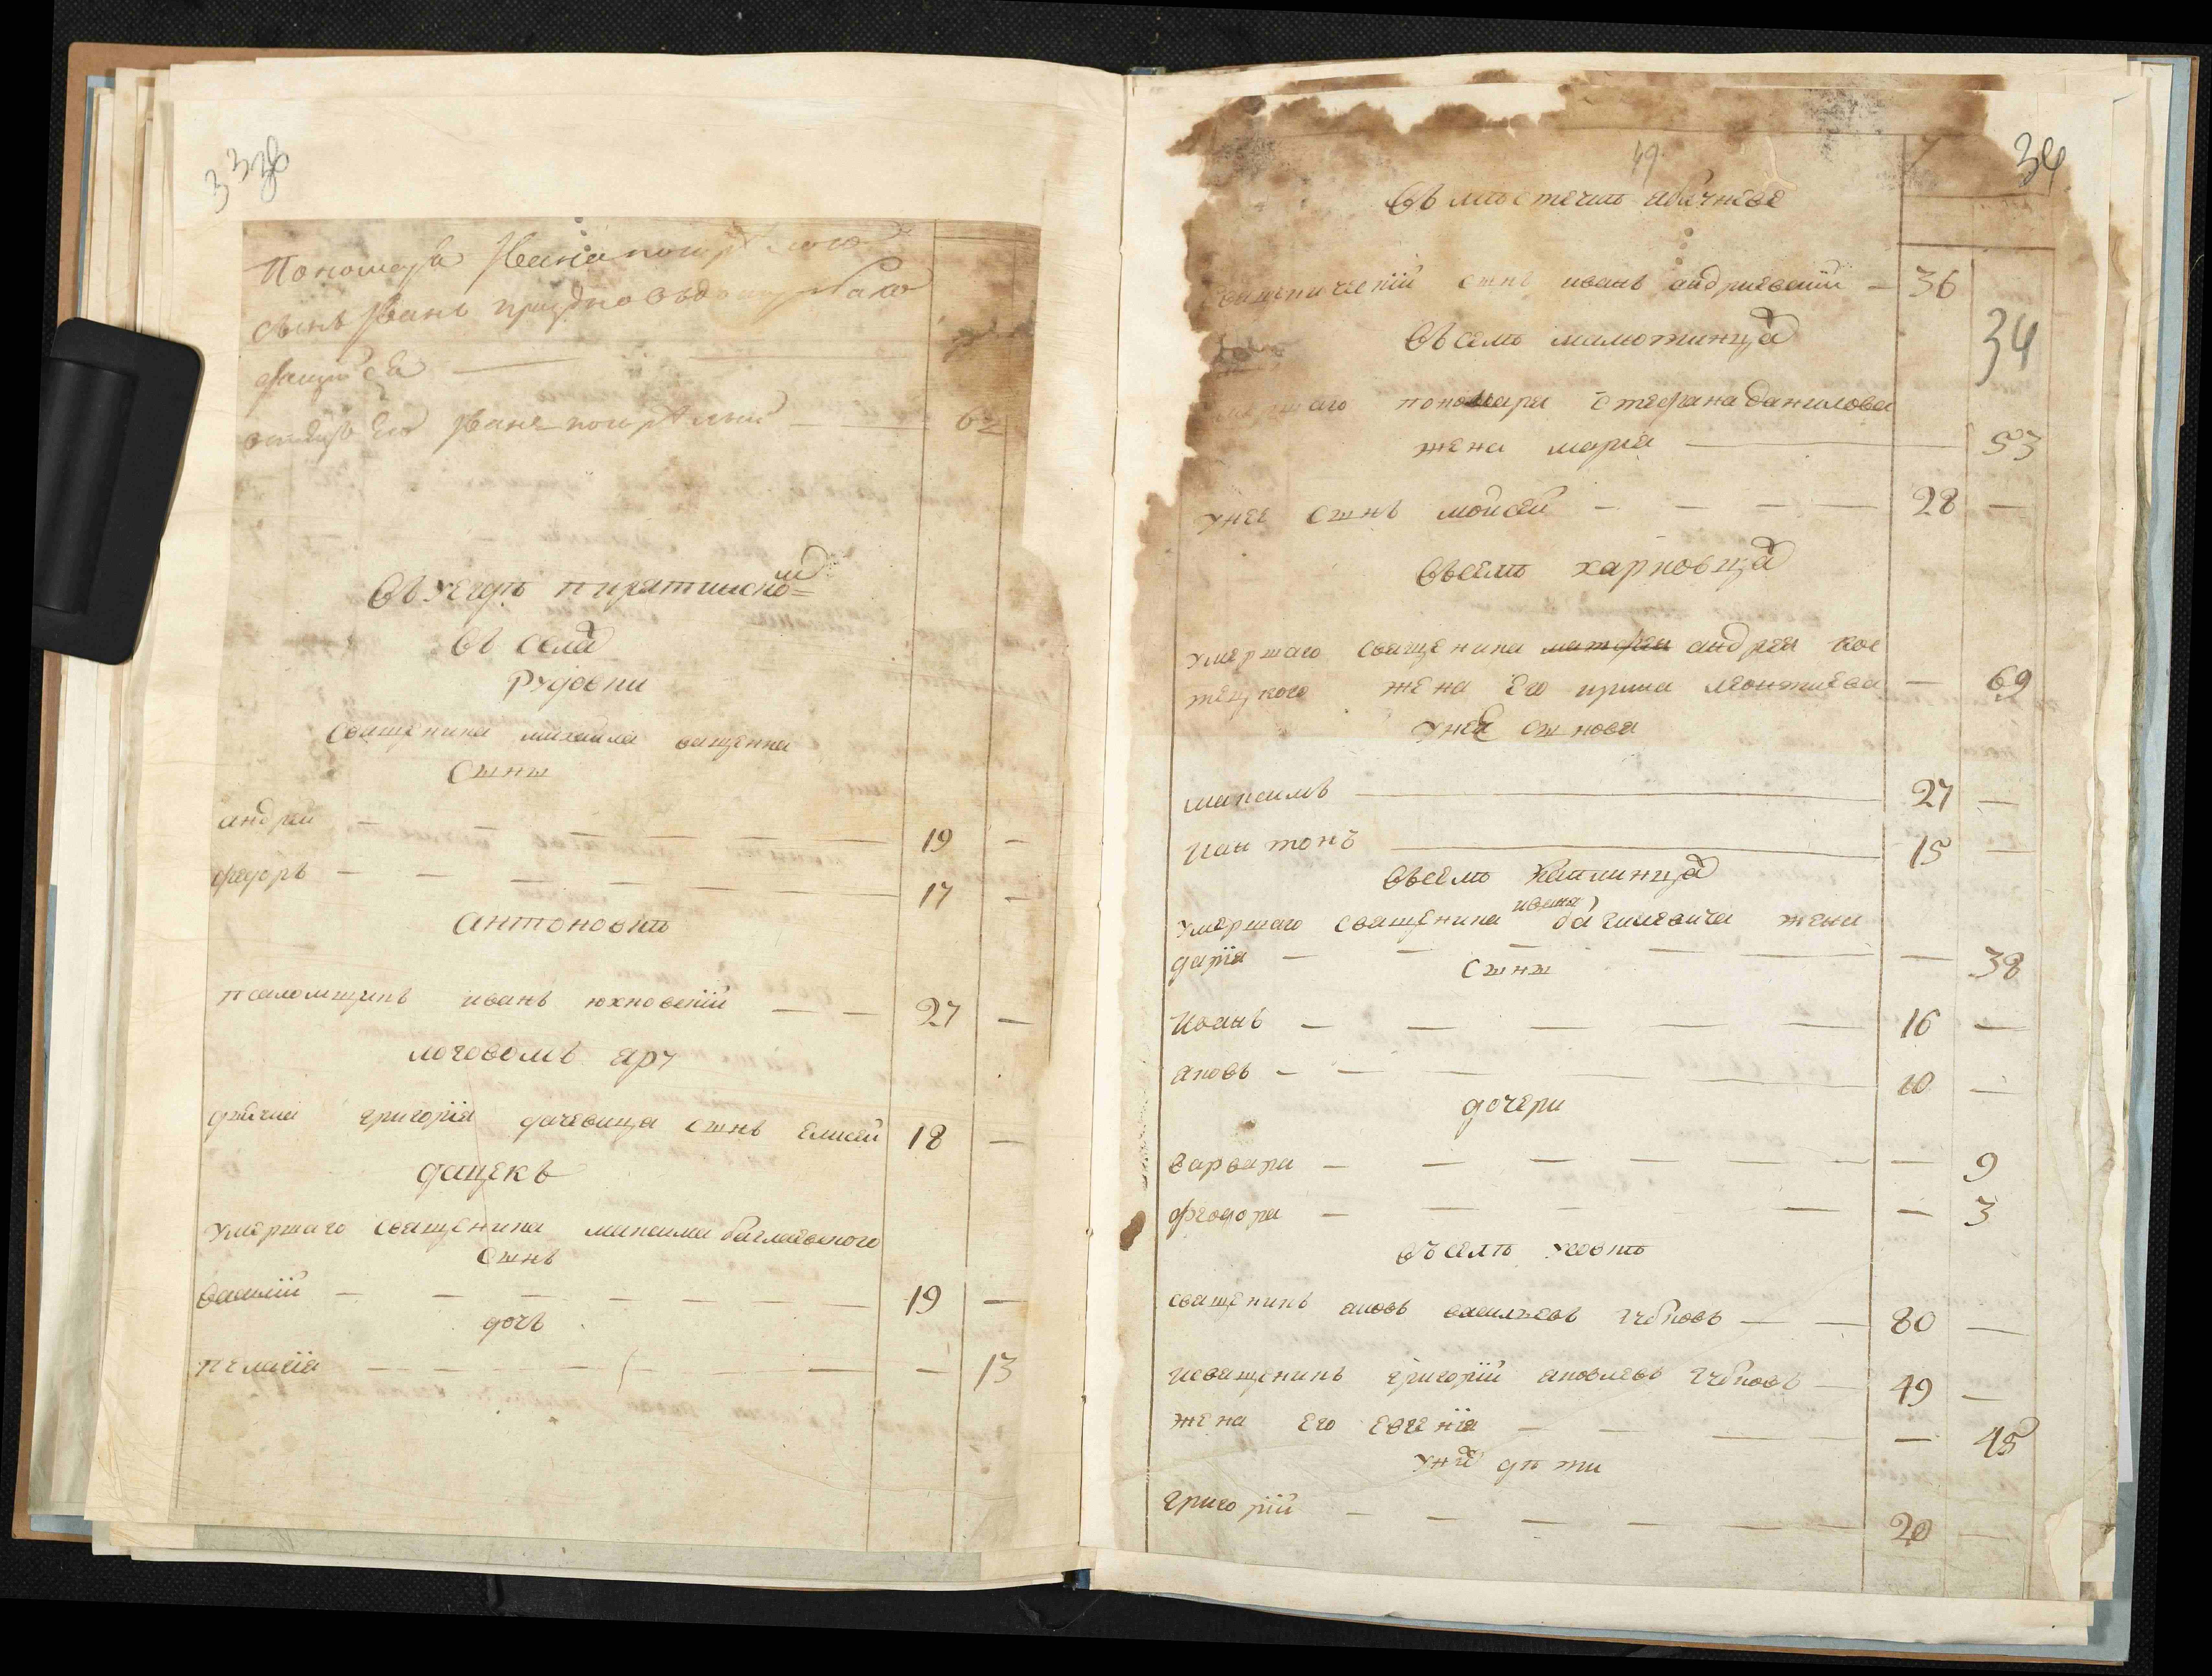 33 зв
Пономара Ивана
сынъ Иванъ празно
отецъ его Иванъ — 62
въ уездѣ пирятинском
въ селах
Рудовки
священика михаила ващенка
сыны
андрей — 19 —
федоръ — 17 —
антоновкѣ
псаломщикъ иванъ юхновскїй — 27 —
логовомъ яру
дячка григорїя дачевица сынъ елисей 18 —
дацекъ
умершаго священика максима баглаевского
сынъ
василїй — 19 —
дочъ
пелагїя — — 13
49
34
въ мѣстечкѣ яблуневе
священическїй сынъ иванъ андрїевскїй — 36
34
въ селѣ малютинцах
умершаго пономаря стефана данилова
жена марїя — 53
у нее сынъ мойсей — 28 —
въ селѣ харковцах
умершаго священика матфея андрея кос
жена его ирина леонтиева — 69
у нее сынове
максимъ — 27 —
платонъ — 15 —
въ селѣ
ивана
умершаго священика жена
дарїя — — 38
сыны
иванъ — 16 —
яковъ — 10 —
дочери
варвара — — 9
феодора — — 3
въ селѣ усовкѣ
священикъ яковъ васильевъ — 80 —
и священикъ григорїй яковлевъ — 49 —
жена его евгенїя — — 45
у них дѣти
григорїй — 20 —